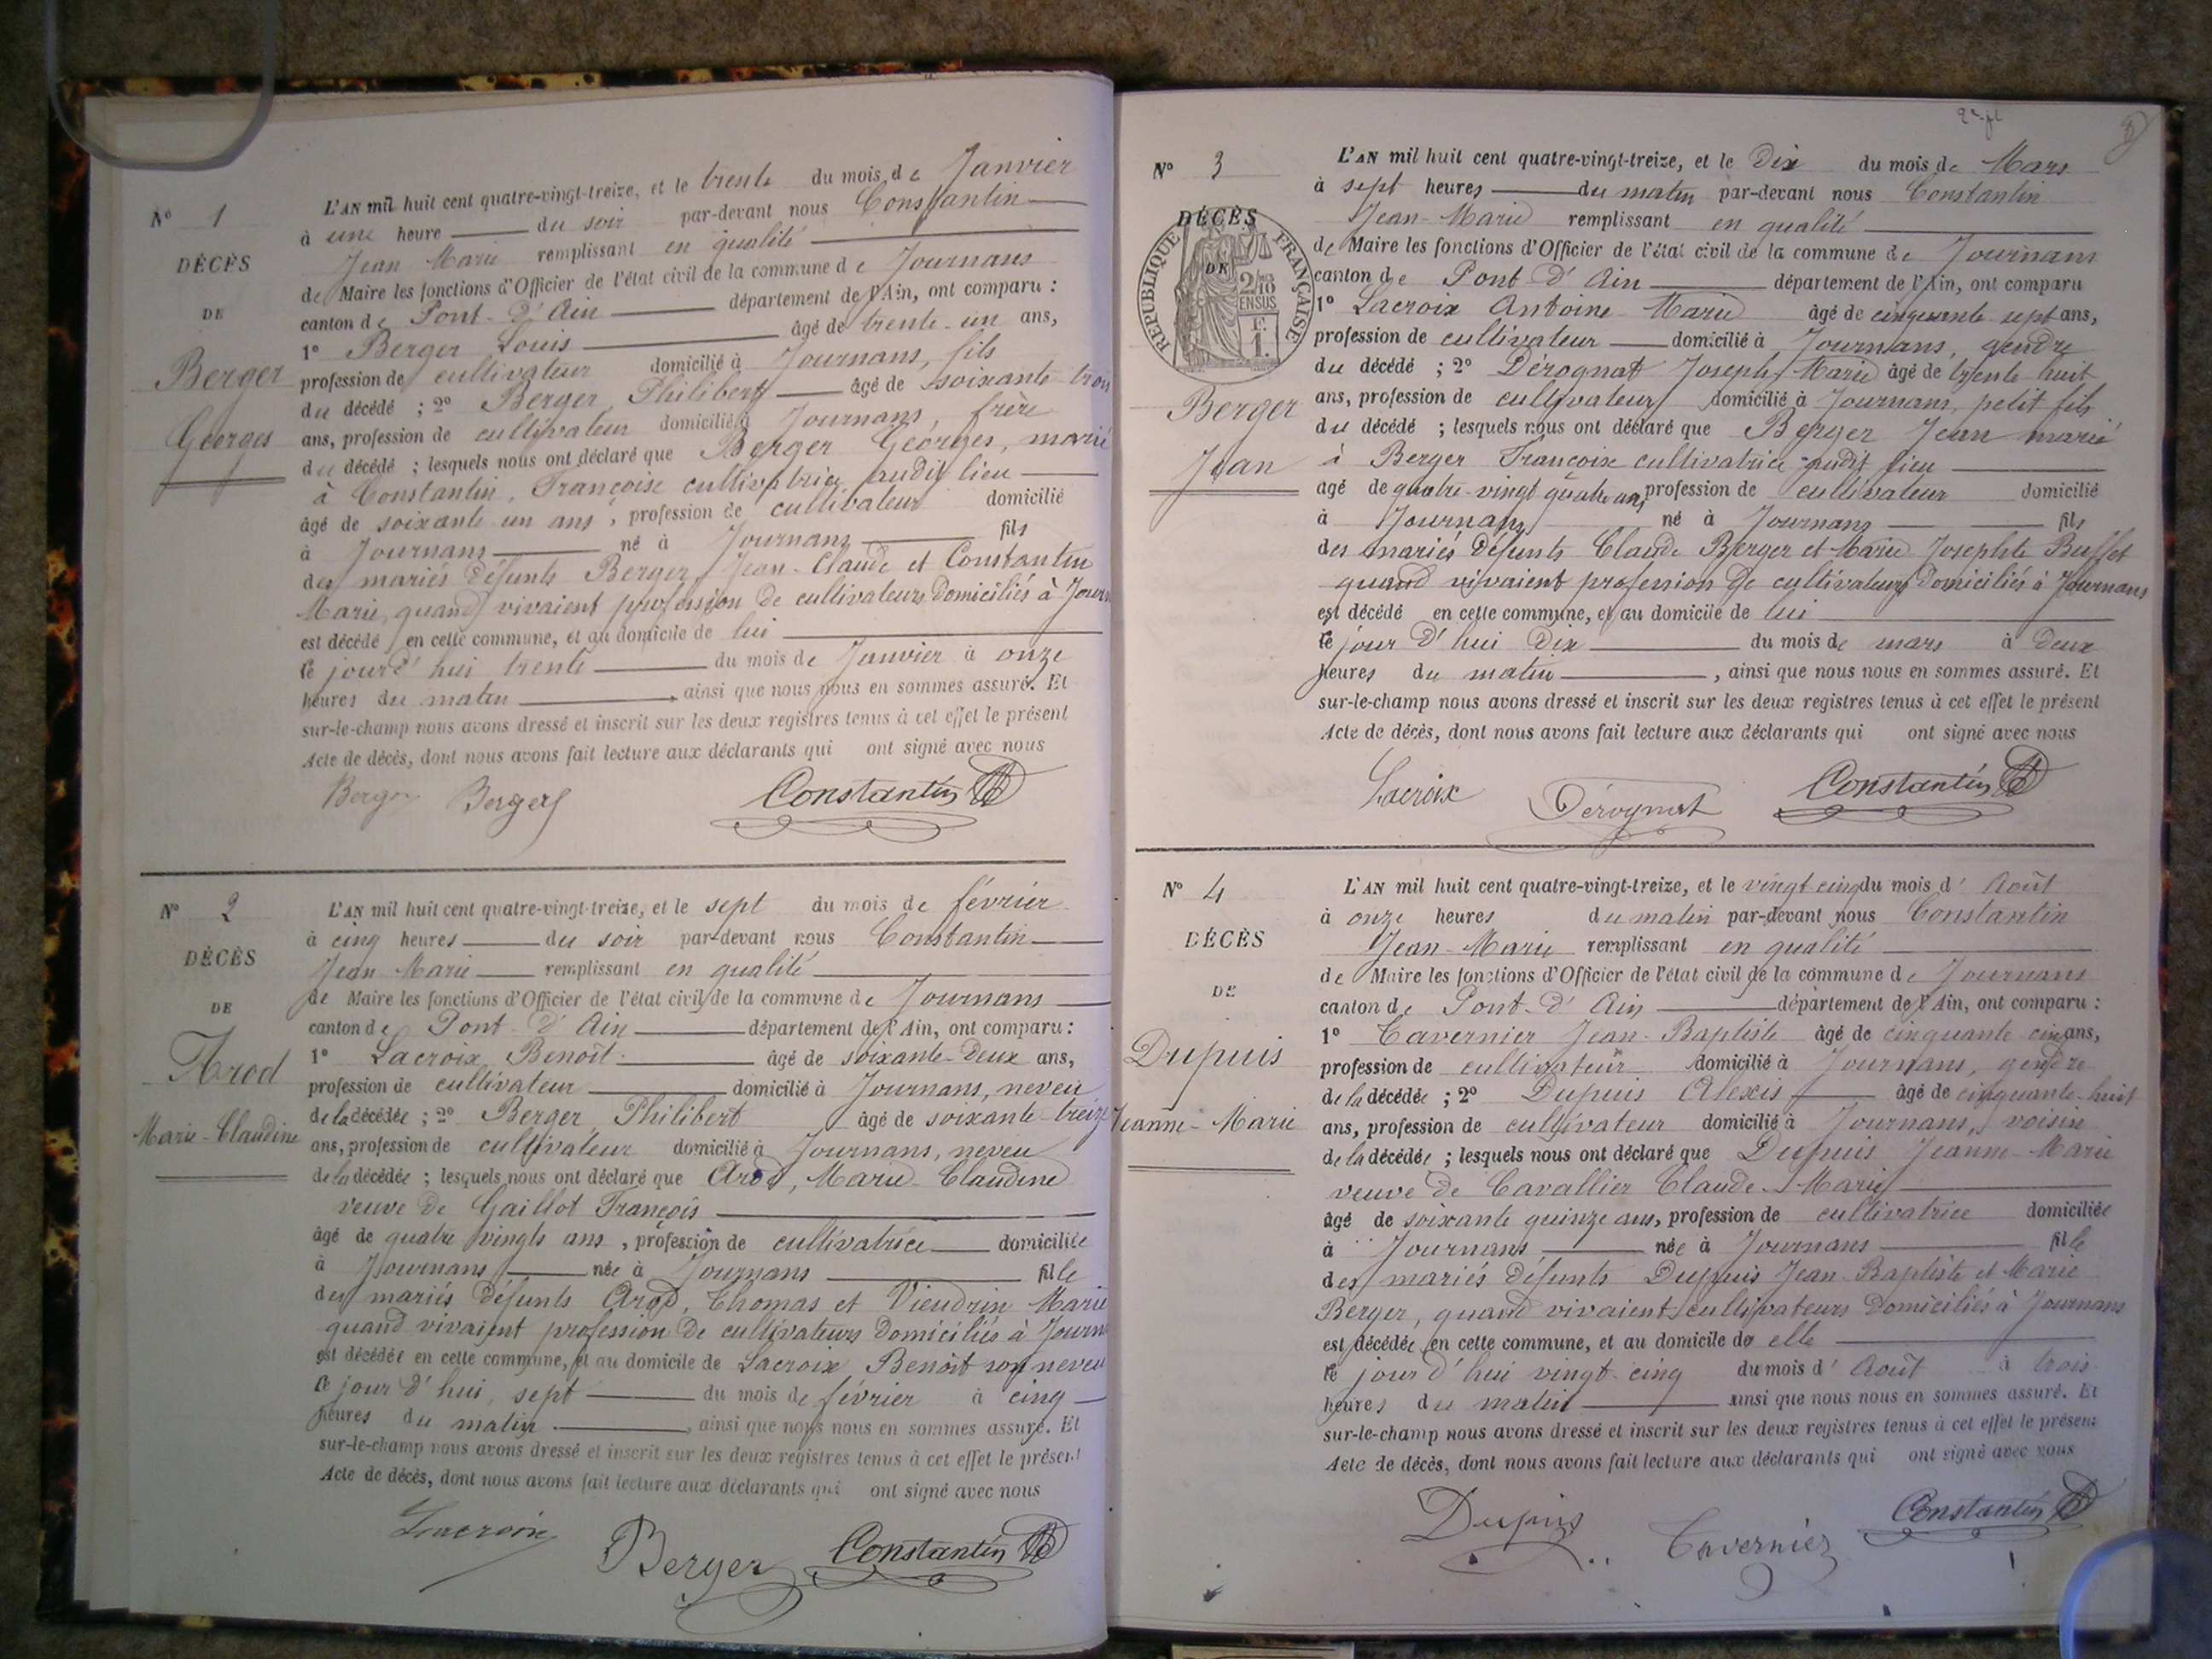 N° 1
DÉCÈS
DE
Berger
Georges
L'AN mil huit cent quatre-vingt-treize, et le trente du mois de Janvier
à une heure du soir par-devant nous Constantin
Jean Marie remplissant en qualité
de Maire les fonctions d'Officier de l'état civil de la commune de Journans
canton de Pont-d'Ain département de l'Ain, ont comparu :
1° Berger Louis âgé de trente-un ans,
profession de cultivateur domicilié à Journans, fils
du décédé ; 2° Berger Philibert âgé de soixante-trois
ans, profession de cultivateur domicilié à Journans, frère
du décédé ; lesquels nous ont déclaré que Berger Géorges, marié
à Constantin, Françoise cultivatrice audit lieu
âgé de soixante un ans, profession de cultivateur domicilié
à Journans né à Journans fils
des mariés défunts Berger, Jean-Claude et Constantin
Marie, quand vivaient profession de cultivateurs domiciliés à Journ
est décédé en cette commune, et au domicile de lui
le jourd'hui trente du mois de Janvier à onze
heures du matin, ainsi que nous nous en sommes assuré. Et
sur-le-champ nous avons dressé et inscrit sur les deux registres tenus à cet effet le présent
Acte de décès, dont nous avons fait lecture aux déclarants qui ont signé avec nous
Berger Berger Constantin
N° 2
DÉCÈS
DE
Arod
Marie-Claudine
L'AN mil huit cent quatre-vingt-treize, et le sept du mois de février
à cinq heures du soir par-devant nous Constantin
Jean Marie remplissant en qualité
de Maire les fonctions d'Officier de l'état civil de la commune de Journans
canton de Pont-d'Ain département de l'Ain, ont comparu :
1° Lacroix Benoît âgé de soixante-deux ans,
profession de cultivateur domicilié à Journans, neveu
de la décédée ; 2° Berger Philibert âgé de soixante-treize
ans, profession de cultivateur domicilié à Journans, neveu
de la décédée ; lesquels nous ont déclaré que Arod, Marie-Claudine
veuve de Gaillot François
âgé de quatre vingts ans, profession de cultivatrice domiciliée
à Journans née à Journans fille
des mariés défunts Arod, Thomas et Vieudrin Marie
quand vivaient profession de cultivateurs domiciliés à Journ
est décédée en cette commune, et au domicile de Lacroix Benoît son neveu
le jour d'hui, sept du mois de février à cinq
heures du matin, ainsi que nous nous en sommes assuré. Et
sur-le-champ nous avons dressé et inscrit sur les deux registres tenus à cet effet le présent
Acte de décès, dont nous avons fait lecture aux déclarants qui ont signé avec nous
Lacroix Berger Constantin
N° 3
DÉCÈS
DE
RÉPUBLIQUE FRANÇAISE
2/10 EN SUS
F. 1.
Berger
Jean
L'AN mil huit cent quatre-vingt-treize, et le Dix du mois de Mars
à sept heures du matin par-devant nous Constantin
Jean-Marie remplissant en qualité
de Maire les fonctions d'Officier de l'état civil de la commune de Journans
canton de Pont d'Ain département de l'Ain, ont comparu
1° Lacroix Antoine Marie âgé de cinquante sept ans,
profession de cultivateur domicilié à Journans, gendre
du décédé ; 2° Dérognat Joseph Marie âgé de trente huit
ans, profession de cultivateur domicilié à Journans, petit fils
du décédé ; lesquels nous ont déclaré que Berger Jean marié
à Berger Françoise cultivatrice audit lieu
âgé de quatre-vingt quatre ans, profession de cultivateur domicilié
à Journans né à Journans fils
des mariés défunts Claude Berger et Marie Josephte Buffet
quand vivaient profession de cultivateurs domiciliés à Journans
est décédé en cette commune, et au domicile de lui
le jour d'hui dix du mois de mars à deux
heures du matin, ainsi que nous nous en sommes assuré. Et
sur-le-champ nous avons dressé et inscrit sur les deux registres tenus à cet effet le présent
Acte de décès, dont nous avons fait lecture aux déclarants qui ont signé avec nous
Lacroix Dérognat Constantin
N° 4
DÉCÈS
DE
Dupuis
Jeanne-Marie
L'AN mil huit cent quatre-vingt-treize, et le vingt cinq du mois d' Août
à onze heures du matin par-devant nous Constantin
Jean-Marie remplissant en qualité
de Maire les fonctions d'Officier de l'état civil de la commune de Journans
canton de Pont-d'Ain département de l'Ain, ont comparu :
1° Tavernier Jean-Baptiste âgé de cinquante cinq ans,
profession de cultivateur domicilié à Journans, gendre
de la décédée ; 2° Dupuis Alexis âgé de cinquante-huit
ans, profession de cultivateur domicilié à Journans, voisin
de la décédée ; lesquels nous ont déclaré que Dupuis Jeanne-Marie
veuve de Cavallier Claude-Marie
âgé de soixante quinze ans, profession de cultivatrice domiciliée
à Journans née à Journans fille
des mariés défunts Dupuis Jean-Baptiste et Marie
Berger, quand vivaient cultivateurs domiciliés à Journans
est décédée en cette commune, et au domicile de elle
le jour d'hui vingt-cinq du mois d' Août à trois
heures du matin ainsi que nous nous en sommes assuré. Et
sur-le-champ nous avons dressé et inscrit sur les deux registres tenus à cet effet le présent
Acte de décès, dont nous avons fait lecture aux déclarants qui ont signé avec nous
Dupuis Tavernier Constantin